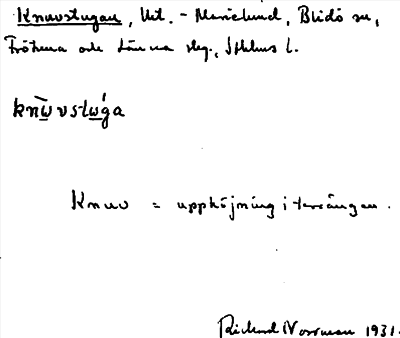 Knuvstugan, Utt. - Marielund, Blidö sn,
Frötuna och Länna slg., Sthlms l.
knu̲vstu̲ga
Knuv = upphöjning i terrängen.
Rickard Norrman 1931.